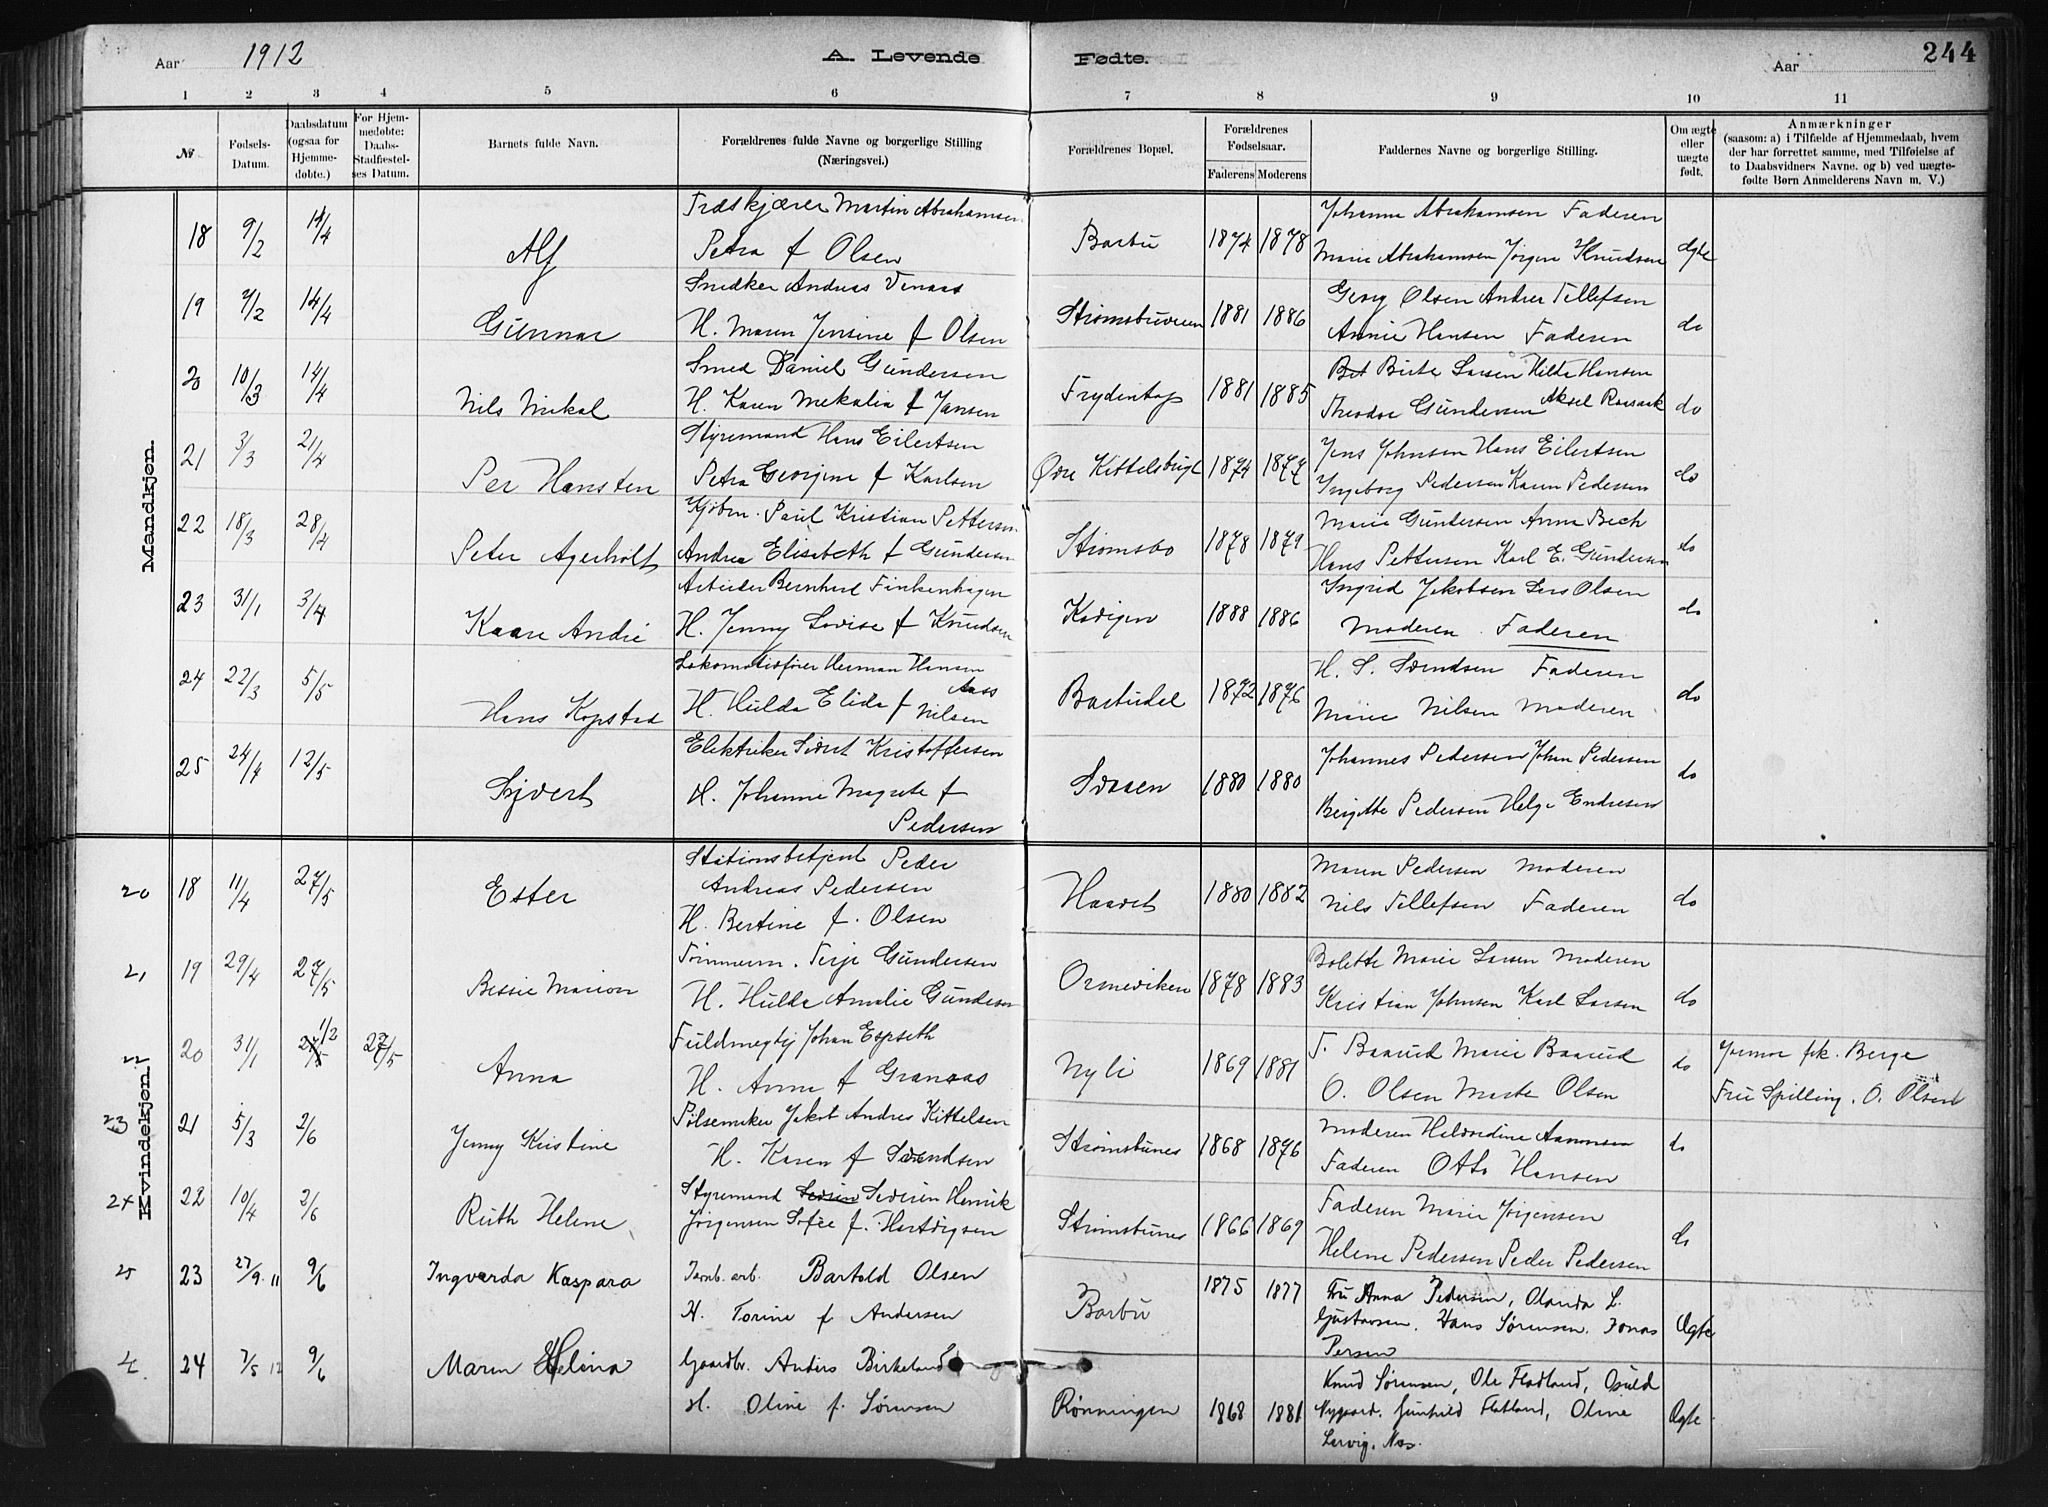 Aar 1912 A. Levende Fødte. Aar 244
1 2 3 4 5 6 7 8 9 10 11
№ Fødsels-Datum. Daabsdatum (ogsaa for Hjemmedøbte.) For Hjemmedøbte: Daabs-Stadfæstelses Datum. Barnets fulde Navn. Forældrenes fulde Navne og borgerlige Stilling (Næringsvei.) Forældrenes Bopæl. Forældrenes Fødselsaar. Faderens Moderens Faddernes Navne og borgerlige Stilling. Om ægte eller uægte født. Anmærkninger (saasom: a) i Tilfælde af Hjemmedaab, hvem der har forrettet samme, med Tilføielse af to Daabsvidners Navne. og b) ved uægtefødte Børn Anmelderens Navn m. V.)
Mandkjøn.
Træskjærer Martin Abrahamsen Johanne Abrahamsen Faderen
18 9/2 14/4 Alf Petra f Olsen Barbu 1874 1878 Marie Abrahamsen Jørgen Knudsen Ægte
Snedker Andreas Venaas Georg Olsen Andrea Tellefsen
19 7/2 14/4 Gunnar H. Maren Jensine f Olsen Strømsbuveien 1881 1886 Annie Hansen Faderen do
Smed Daniel Gundersen Birte Larsen Hilda Hansen
20 10/3 14/4 Nils Mikal H. Karen Mekalia f Jansen Frydentop 1881 1885 Theodor Gundersen Aksel do
Styremand Hans Eilertsen Jens Johnsen Hans Eilertsen
21 3/3 21/4 Per Hansten Petra Georgine f Karlsen Øvre Kittelsbugt 1874 1877 Ingeborg Pedersen Karen Pedersen do
Kjøbm. Paul Kristian Pettersen Marie Gundersen Anna Bech
22 18/3 28/4 Peter Agerholt Andrea Elisabeth f Gundersen Strømsbo 1878 1879 Hans Pettersen Karl E. Gundersen do
Arbeider Bernhard Finkenhagen Ingrid Jakobsen Lars Olsen
23 31/1 3/4 Kaare André H. Jenny Lovise f Knudsen Kodigen 1888 1886 Moderen Faderen do
Lokomotivfører Herman Hansen Aass H. S. Svendsen Faderen
24 22/3 5/5 Hans Kopstad H. Hulda Elida f Nilsen Barbudal 1872 1876 Marie Nilsen Moderen do
Elektriker Sivert Kristoffersen Johannes Pedersen Johan Pedersen
25 24/4 12/5 Sijvert H. Johanne Magrete f Pedersen Svaaen 1880 1880 Bergitte Pedersen Helge Endresen do
Kvindekjøn.
Stationsbetjent Peder Maren Pedersen Moderen
20 18 11/4 27/5 Ester Andreas Pedersen Haavet 1880 1882 Nils Tellefsen Faderen do
H. Bertine f. Olsen
Tømmerm. Terje Gundersen Bolette Marie Larsen Moderen
21 19 29/4 27/5 Bessie Marion H. Hulda Amalie Gundersen Ormeviken 1878 1883 Kristian Johnsen Karl Larsen do
Fuldmegtig Johan Espseth T. Baarud Marie Baarud Jormor frk. Berge
22 20 31/1 1/2 27/5 Anna H. Anna f Granaas Nyli 1869 1881 O. Olsen Marte Olsen do Fru Spilling, O. Olsen
Pølsemaker Jakob Andreas Kittelsen Moderen Helvedine Aanonsen
23 21 5/3 2/6 Jenny Kristine H. Karen f Svendsen Strømsbunes 1868 1876 Faderen Otto Hansen do
Styremand Severin Henrik Faderen Marie Jørgensen
24 22 10/4 2/6 Ruth Helene Jørgensen Sofie f. Hartvigsen Strømsbunes 1866 1869 Helene Pedersen Peder Pedersen do
25 23 27/9 11 9/6 Ingvarda Kaspara Jernb. arb. Bartold Olsen 1875 1877 Fru Anna Pedersen, Olanda L.
H. Torine f Andersen Barbu Gustavsen, Hans Sørensen, Jonas Ægte
Persen
24 7/5 12 9/6 Maren Helina Gaardbr. Anders Birkeland Knud Sørensen, Ole Fladland, Osuld
H. Oline f. Sørensen Rønningen 1868 1881 Nygaard, Gunhild Flatland, Oline Ægte
Lervig, Næs.